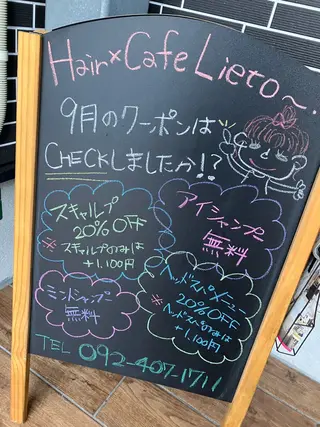 Hair×Cafe Lieto〜.
9月のクーポンは
CHECKしましたか!?
スキャルプ
20%OFF
※スキャルプのみは
+1,100円
アイシャンプー
無料
ヘッドスパメニュー
20%OFF
※ヘッドスパのみは
+1,100円
ミントシャンプー
無料
TEL 092-407-1711